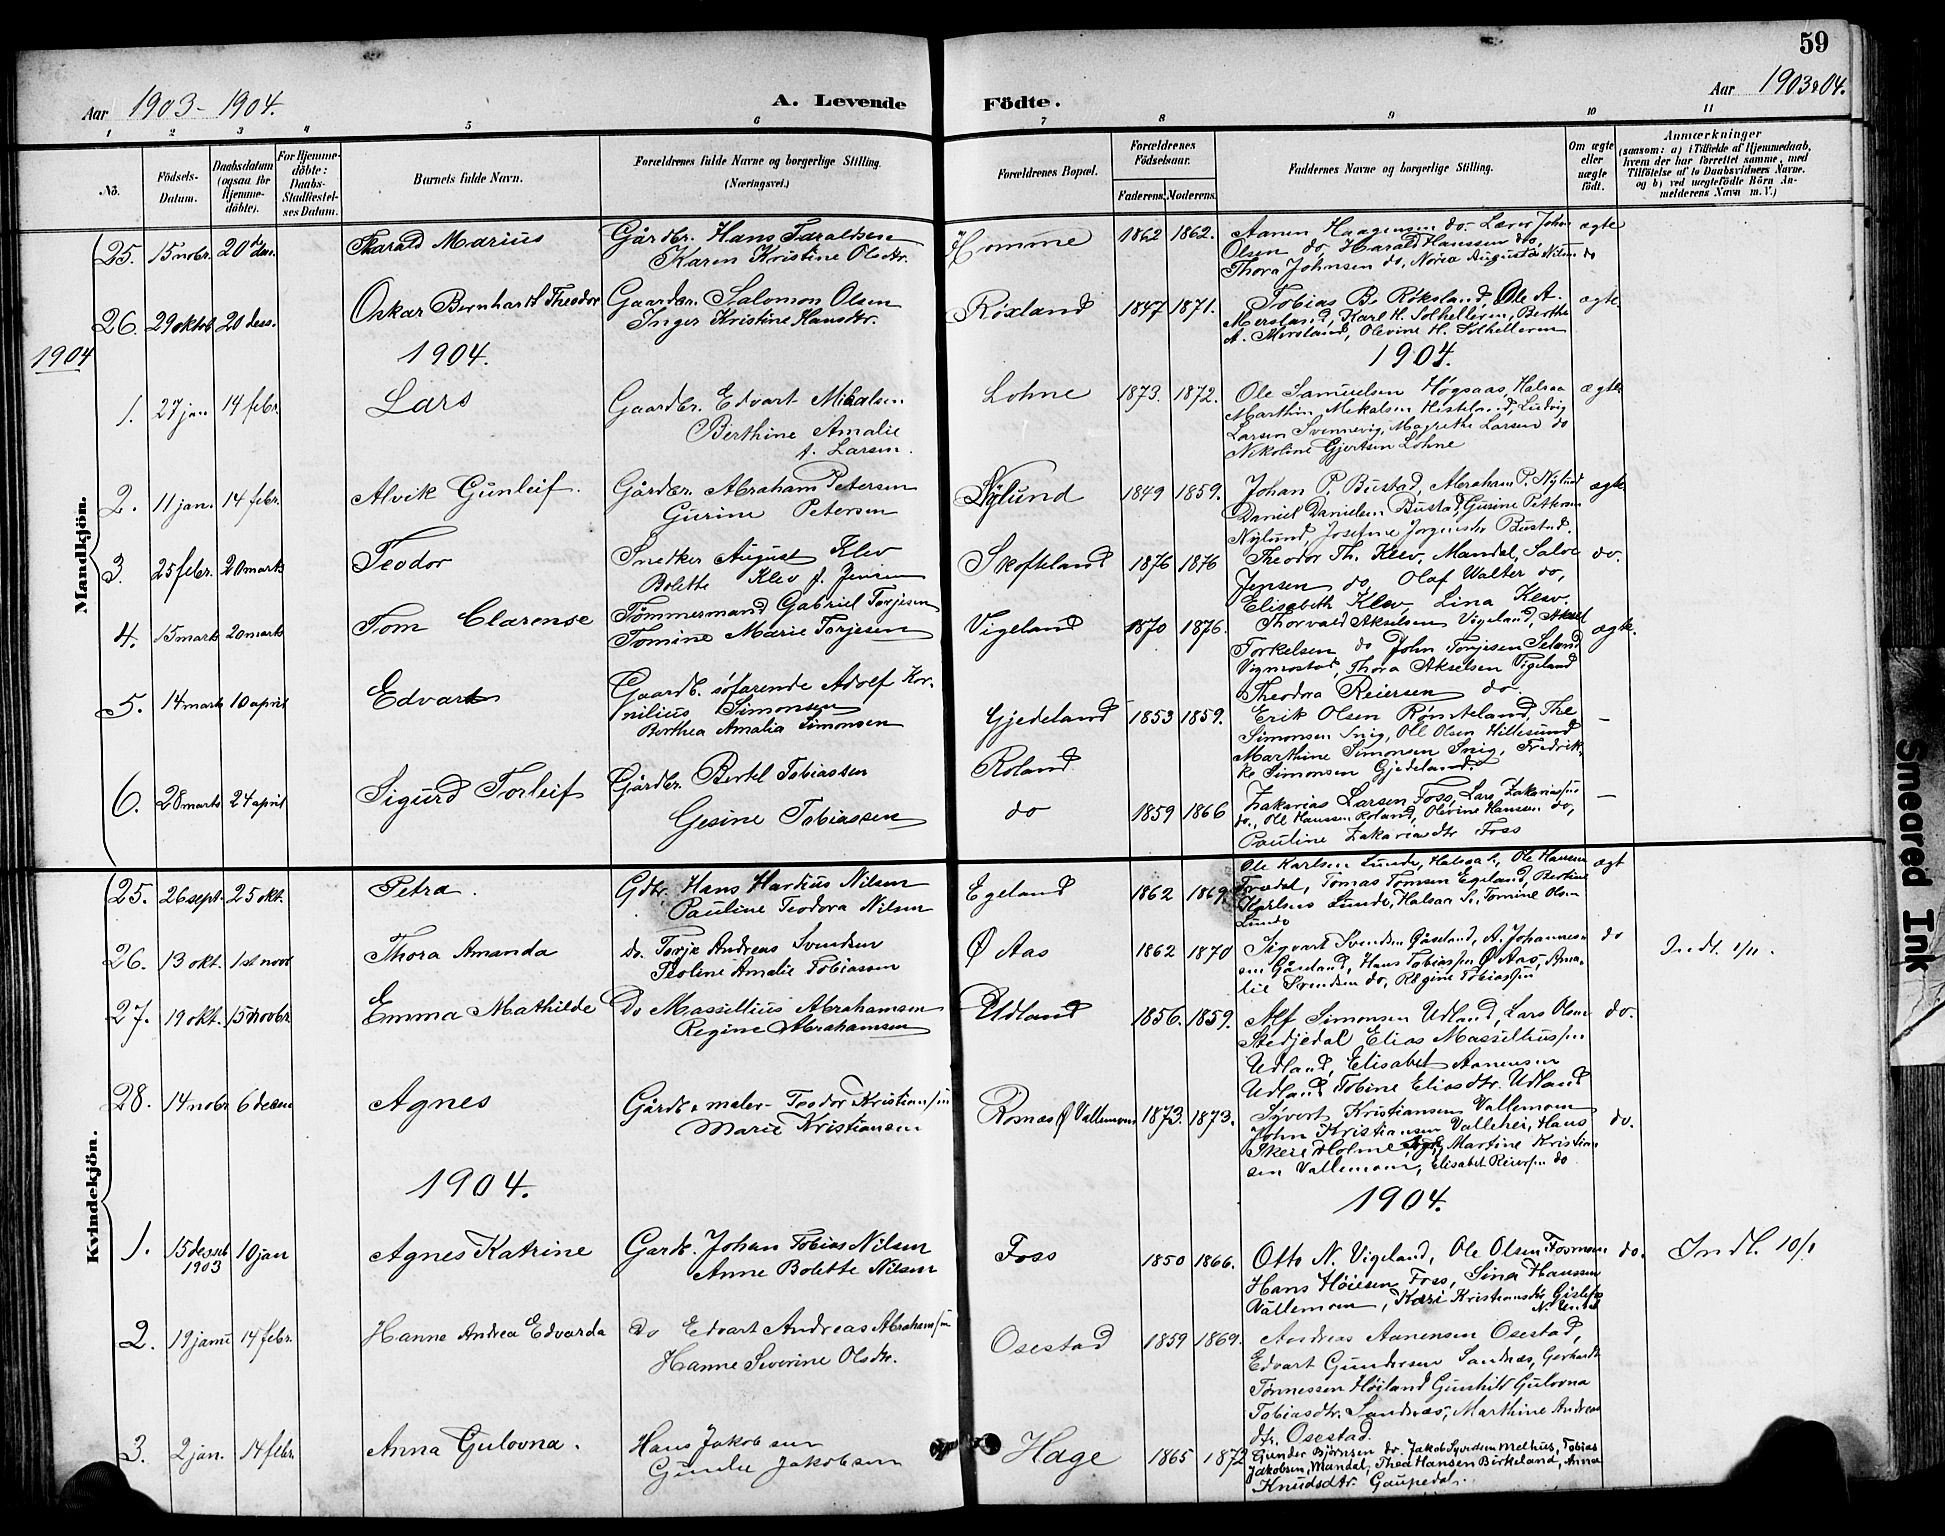 59
Aar 1903-1904.
A. Levende Födte.
Aar 1903 & 04.
1 2 3 4 5 6 7 8 9 10 11
No.
Födsels-Datum.
Daabsdatum (ogsaa for Hjemme-döbte).
For Hjemme-döbte: Daabs-Stadfæstel-ses Datum.
Barnets fulde Navn.
Forældrenes fulde Navne og borgerlige Stilling. (Næringsvei.)
Forældrenes Bopæl.
Forældrenes Födselsaar.
Faderens. Moderens.
Faddernes Navne og borgerlige Stilling.
Om ægte eller uægte födt.
Anmærkninger
(saasom: a) i Tilfælde af Hjemmedaab, hvem der har forrettet samme, med Tilföielse af to Daabsvidners Navne. og b) ved uægtefödte Börn An-melderens Navn m. V.)
Mandkjön.
25. 15 nobr. 20 de des. Harald Marius
Gårdbr. Hans Taraldsen
Karen Kristine Olsdtr.
Homme 1862 1862.
Aanen Haagensen do. Lærer Johan
Olsen do, Harald Hanssen do,
Thora Johnsen do, Norea Augusta Nilsen do
ægte
26. 29 oktob 20 dess. Oskar Bernhardt Theodor
Gaardbr. Salomon Olsen
Inger Kristine Hansdtr.
Röxland 1847 1871.
Tobias B. Röksland, Ole A.
Mersland, Karl H. Solhelleren, Berthe
A. Mersland, Olevine H. Solhelleren
ægte
1904
1904.
1904.
1. 27 jan 14 febr. Lars
Gaardbr. Edvart Mikalsen
Berthine Amalie
f. Larsen.
Lohne 1873. 1872.
Ole Samuelsen Høgsaas, Halsaa
Marthin Mekalsen Hesteland, Ludvig
Larsen Svennevig, Magrethe Larsen do
Nikoline Gjertsen Lohne
ægte
2. 11 jan. 14 febr. Alvik Gunleif.
Gårdbr. Abraham Petersen
Gurine Petersen
Nylund 1849 1859.
Johan P. Bustad, Abraham P. Nylund
Daniel Danielsen Bustad, Gusine Pettersen
Nylund, Josefine Jorgensdtr Bustad.
ægte
3. 25 febr. 20 marts Teodor
Snedker August Klev
Bolette Klev f. Jensen
Skofteland 1876 1876
Theodor Th. Klev, Mandal, Salve
Jensen do, Olaf Walter do,
Elisabeth Klev, Lina Klev.
do.
4. 15 marts 20 marts Tom Clarense
Tømmermand Gabriel Torjesen
Tomine Marie Torjesen
Vigeland 1870 1876.
Thorvald Akselsen Vigeland, Aksel
Torkelsen do John Torjesen Seland
Vigmostad, Thora Akselsen Vigeland
Theodora Reiersen do.
ægte.
5. 14 marts 10 april Edvart
Gaardb. søfarende Adolf Kor-
nilius Simonsen
Berthea Amalia Simonsen
Gjedeland 1853 1859.
Erik Olsen Rømteland, The
Simonsen Snig, Ole Olsen Hillesund
Marthine Simonsen Snig, Fredrik-
ke Simonsen Gjedeland.
—
6. 28 marts 24 april Sigurd Torleif
Gårdbr. Bertel Tobiassen
Gesine Tobiassen
Roland
do 1859 1866
Zakarias Larsen Foss, Lars Zakarias/sen
do., Ole Hanssen Roland, Olevine Hansen do,
Pauline Zakariasdtr Foss
—
Kvindekjön.
25. 26 sept. 25 okt. Petra.
Gdbr. Hans Hartius Nilsen
Pauline Teodora Nilsen
Egeland 1862 1869.
Ole Karlsen Lunde, Halsaa S., Ole Hansen
Tredal, Tomas Tomsen Egeland, Bertine
Karlsen Lunde, Halsaa S., Tomine Olsen
Lunde
ægt
26. 13 okt. 1st novb Thora Amanda
do. Torje Andreas Svendsen
Teoline Amalie Tobiassen
Ø Aas 1862 1870
Sigvart Svendsen Gåseland, A. Johannes-
sen Gåseland, Hans Tobias/sen Ø Aas, Ama-
lie Svendsen do, Regine Tobias/sen
do
Indl. 1/11.
27. 19 okt. 15 novbr Emma Mathilde
Do Massellius Abrahamsen
Regine Abrahamsen
Udland 1856. 1859.
Alf Simonsen Udland, Lars Olsen
Stedjedal Elias Massellius/sen
Udland, Elisabet Aanensen
Udland Tobine Eliasdtr. Udland
do.
28. 14 nobr 6 decem Agnes
Gårdb & maler- Teodor Kristian/sen
Marie Kristiansen
Rosnes Ø Vallemoen 1873. 1873.
Sivert Kristiansen Vallemoen
John Kristiansen Vallehei, Hans
Skeie Holme, Martine Kristian-
sen Vallemoen, Elisabet Reier/sen do
do.
1904.
1904.
1. 15 dessb 1903 10 jan Agnes Katrine
Gardb. Johan Tobias Nilsen
Anne Bolette Nilsen
Foss 1850 1866.
Otto N. Vigeland, Ole Olsen Fosmoen
Hans Høiesen Foss, Sina Hanssen
Vallemoen, Kari Kristiansdtr Gislefos
N. Undal
do.
Indl. 10/1
2. 19 janu 14 febr. Hanne Andrea Edvarda
Do Edvart Andreas Abraham/sen
Hanne Severine Olsdtr.
Osestad 1859 1869.
Andreas Aanensen Osestad,
Edvart Gundersen Sandnæs, Gerhardt
Tønnessen Høiland Gunhilt Gulovna
Tobiasdtr. Sandnæs, Marthine Andreas
dtr. Osestad.
3. 2 jan. 14 febr Anna Gulovna.
Hans Jakobsen
Gunde Jakobsen
Hage 1865 1872
Gunder Bjørnsen do. Jakob Syvertsen Melhus, Tobias
Jakobsen, Mandal, Thea Hansen Birkeland, Anna
Knudsdtr. Gaupedal.
Smeared Ink